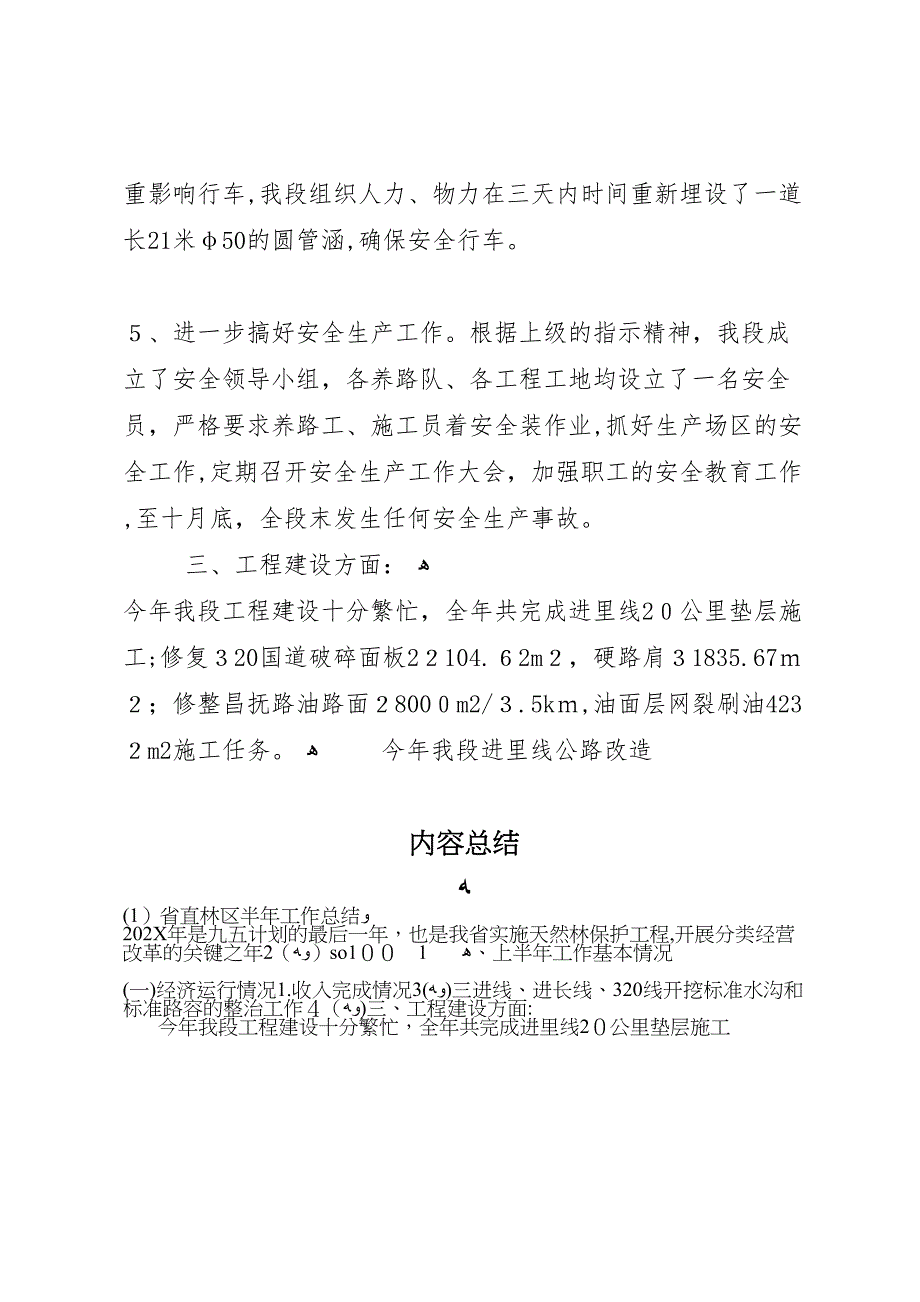 重影响行车,我段组织人力、物力在三天内时间重新埋设了一道
长21米φ50的圆管涵,确保安全行车。
５、进一步搞好安全生产工作。根据上级的指示精神，我段成
立了安全领导小组，各养路队、各工程工地均设立了一名安全
员，严格要求养路工、施工员着安全装作业,抓好生产场区的安
全工作,定期召开安全生产工作大会，加强职工的安全教育工作
,至十月底，全段末发生任何安全生产事故。
三、工程建设方面：ﻫ
今年我段工程建设十分繁忙，全年共完成进里线2０公里垫层施
工;修复３20国道破碎面板2２104.６2m２，硬路肩３1835.67ｍ
２；修整昌抚路油路面２800０m2/３.5kｍ,油面层网裂刷油423
２m2施工任务。ﻫ 今年我段进里线公路改造
内容总结
ﻫ
(1）省直林区半年工作总结ﻭ
202X年是九五计划的最后一年，也是我省实施天然林保护工程,开展分类经营
改革的关键之年2（ﻭﻫ）so1００ 1 ﻫ、上半年工作基本情况
(一)经济运行情况1.收入完成情况3(ﻭﻫ)三进线、进长线、320线开挖标准水沟和
标准路容的整治工作４（ﻭﻫ)三、工程建设方面:
今年我段工程建设十分繁忙，全年共完成进里线2０公里垫层施工